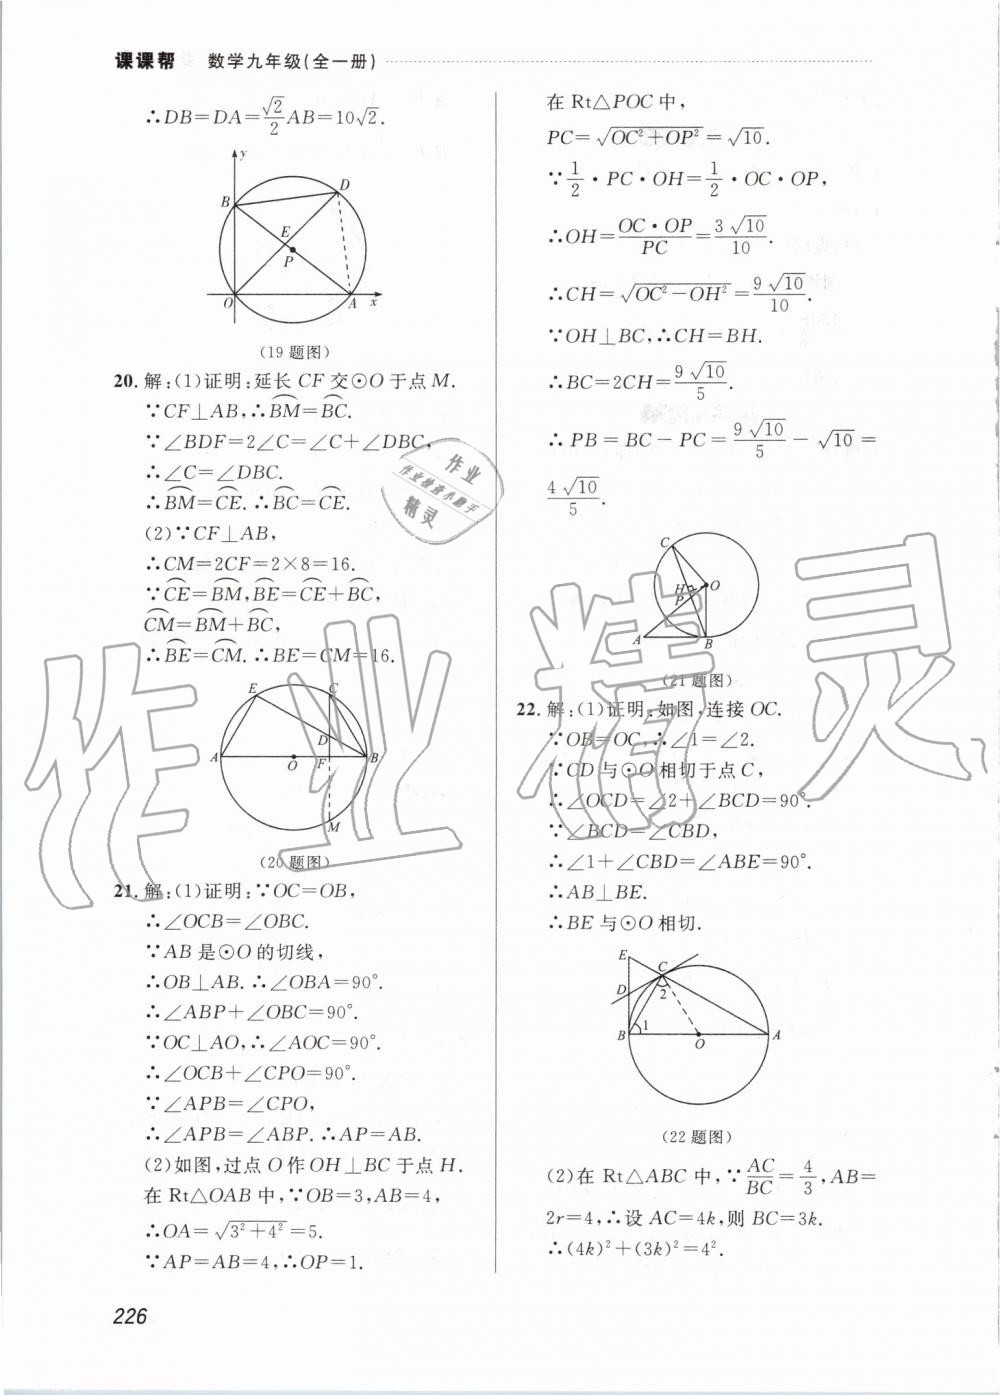 课课帮 数学九年级(全一册)
∴DB=DA=√2/2 AB=10√2.
y
D
B
E
P
O
A
x
(19题图)
20. 解:(1)证明:延长 CF 交⊙O 于点 M.
∵CF⊥AB,∴B͡M=B͡C.
∵∠BDF=2∠C=∠C+∠DBC,
∴∠C=∠DBC.
∴B͡M=C͡E.∴B͡C=C͡E.
(2)∵CF⊥AB,
∴CM=2CF=2×8=16.
∵C͡E=B͡M,B͡E=C͡E+B͡C,
C͡M=B͡M+B͡C,
∴B͡E=C͡M.∴BE=CM=16.
E
C
D
A
O
F
B
M
(20题图)
21. 解:(1)证明:∵OC=OB,
∴∠OCB=∠OBC.
∵AB 是⊙O 的切线,
∴OB⊥AB.∴∠OBA=90°.
∴∠ABP+∠OBC=90°.
∵OC⊥AO,∴∠AOC=90°.
∴∠OCB+∠CPO=90°.
∵∠APB=∠CPO,
∴∠APB=∠ABP.∴AP=AB.
(2)如图,过点 O 作 OH⊥BC 于点 H.
在 Rt△OAB 中,∵OB=3,AB=4,
∴OA=√(3²+4²)=5.
∵AP=AB=4,∴OP=1.
在 Rt△POC 中,
PC=√(OC²+OP²)=√10.
∵1/2·PC·OH=1/2·OC·OP,
∴OH=OC·OP/PC=3√10/10.
∴CH=√(OC²−OH²)=9√10/10.
∵OH⊥BC,∴CH=BH.
∴BC=2CH=9√10/5.
∴PB=BC−PC=9√10/5−√10=
4√10/5.
C
H
O
P
A
B
(21题图)
22. 解:(1)证明:如图,连接 OC.
∵OB=OC,∴∠1=∠2.
∵CD 与⊙O 相切于点 C,
∴∠OCD=∠2+∠BCD=90°.
∵∠BCD=∠CBD,
∴∠1+∠CBD=∠ABE=90°.
∴AB⊥BE.
∴BE 与⊙O 相切.
E
C
D
2
B
1
O
A
(22题图)
(2)在 Rt△ABC 中,∵AC/BC=4/3,AB=
2r=4,∴设 AC=4k,则 BC=3k.
∴(4k)²+(3k)²=4².
226
作业精灵
作业
作业检查小助手
精灵